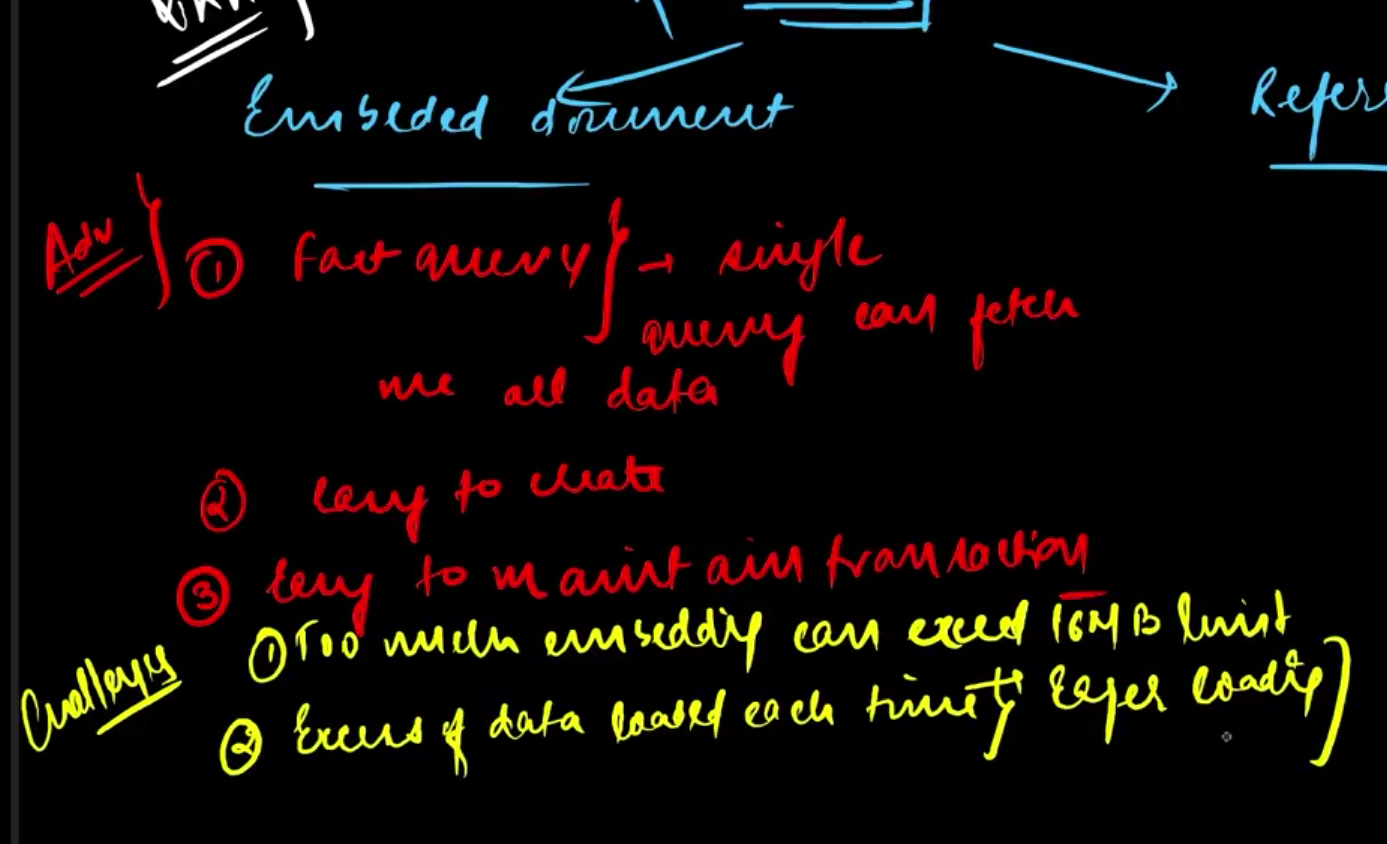 Embeded document
Refer
Adv
① Fast query → single
query can fetch
me all data
② easy to create
③ easy to maintain transaction
Challenges
① Too much embedding can exceed 16MB limit
② Excess of data loaded each time Eager loading